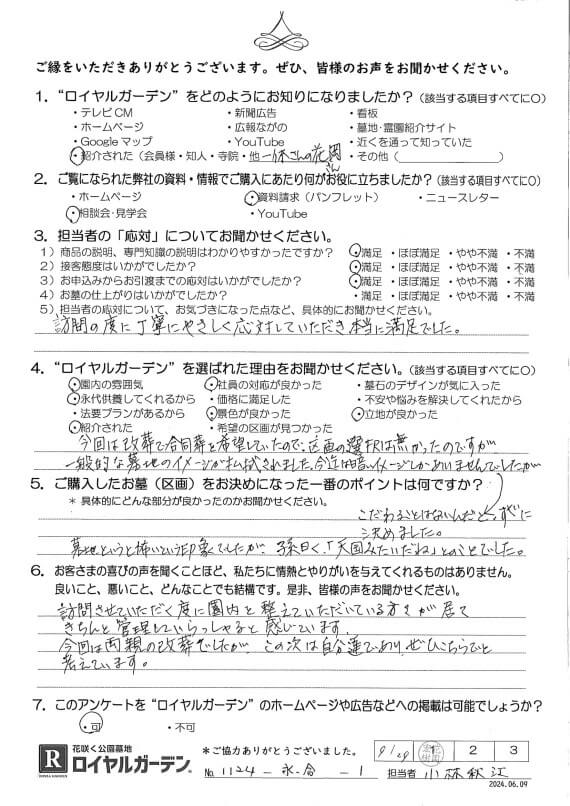 ご縁をいただきありがとうございます。ぜひ、皆様のお声をお聞かせください。
1. “ロイヤルガーデン”をどのようにお知りになりましたか?(該当する項目すべてに○)
・テレビCM ・新聞広告 ・看板
・ホームページ ・広報ながの ・墓地・霊園紹介サイト
・Googleマップ ・YouTube ・近くを通って知っていた
・紹介された(会員様・知人・寺院・他 一休さんの花岡さん ・その他( )
2. ご覧になられた弊社の資料・情報でご購入にあたり何がお役に立ちましたか?(該当する項目すべてに○)
・ホームページ ・資料請求(パンフレット) ・ニュースレター
・相談会・見学会 ・YouTube
3. 担当者の「応対」についてお聞かせください。
1)商品の説明、専門知識の説明はわかりやすかったですか? ・満足 ・ほぼ満足 ・やや不満 ・不満
2)接客態度はいかがでしたか? ・満足 ・ほぼ満足 ・やや不満 ・不満
3)お申込みからお引渡までの応対はいかがでしたか? ・満足 ・ほぼ満足 ・やや不満 ・不満
4)お墓の仕上がりはいかがでしたか? ・満足 ・ほぼ満足 ・やや不満 ・不満
5)担当者の応対について、お気づきになった点など、具体的にお聞かせください。
訪問の度に丁寧にやさしく応対していただき本当に満足でした。
4. “ロイヤルガーデン”を選ばれた理由をお聞かせください。(該当する項目すべてに○)
・園内の雰囲気 ・社員の対応が良かった ・墓石のデザインが気に入った
・永代供養してくれるから ・価格に満足した ・不安や悩みを解決してくれたから
・法要プランがあるから ・景色が良かった ・立地が良かった
・紹介された ・希望の区画が見つかった
今回は改葬で合同葬を希望していたので、区画の選択は無かったのですが
一般的な墓地のイメージが払拭されました。今迄は暗いイメージしかありませんでしたが
5. ご購入したお墓(区画)をお決めになった一番のポイントは何ですか?
*具体的にどんな部分が良かったのかお聞かせください。
こだわることはないんだと、すぐに
決めました。
墓地というと怖いという印象でしたが、孫曰く、「天国みたいだね」とのことでした。
6. お客さまの喜びの声を聞くことほど、私たちに情熱とやりがいを与えてくれるものはありません。
良いこと、悪いこと、どんなことでも結構です。是非、皆様の声をお聞かせください。
訪問させていただく度に園内を整えていただいている方々が居て
きちんと管理していらっしゃると感じています。
今回は両親の改葬でしたが、この次は自分達であり、ぜひこちらでと
考えています。
7. このアンケートを“ロイヤルガーデン”のホームページや広告などへの掲載は可能でしょうか?
・可 ・不可
R
花咲く公園墓地
ロイヤルガーデン®
*ご協力ありがとうございました。
9/29 1 2 3
No. 1124-永合-1 担当者 小林秋江
2024.06.09